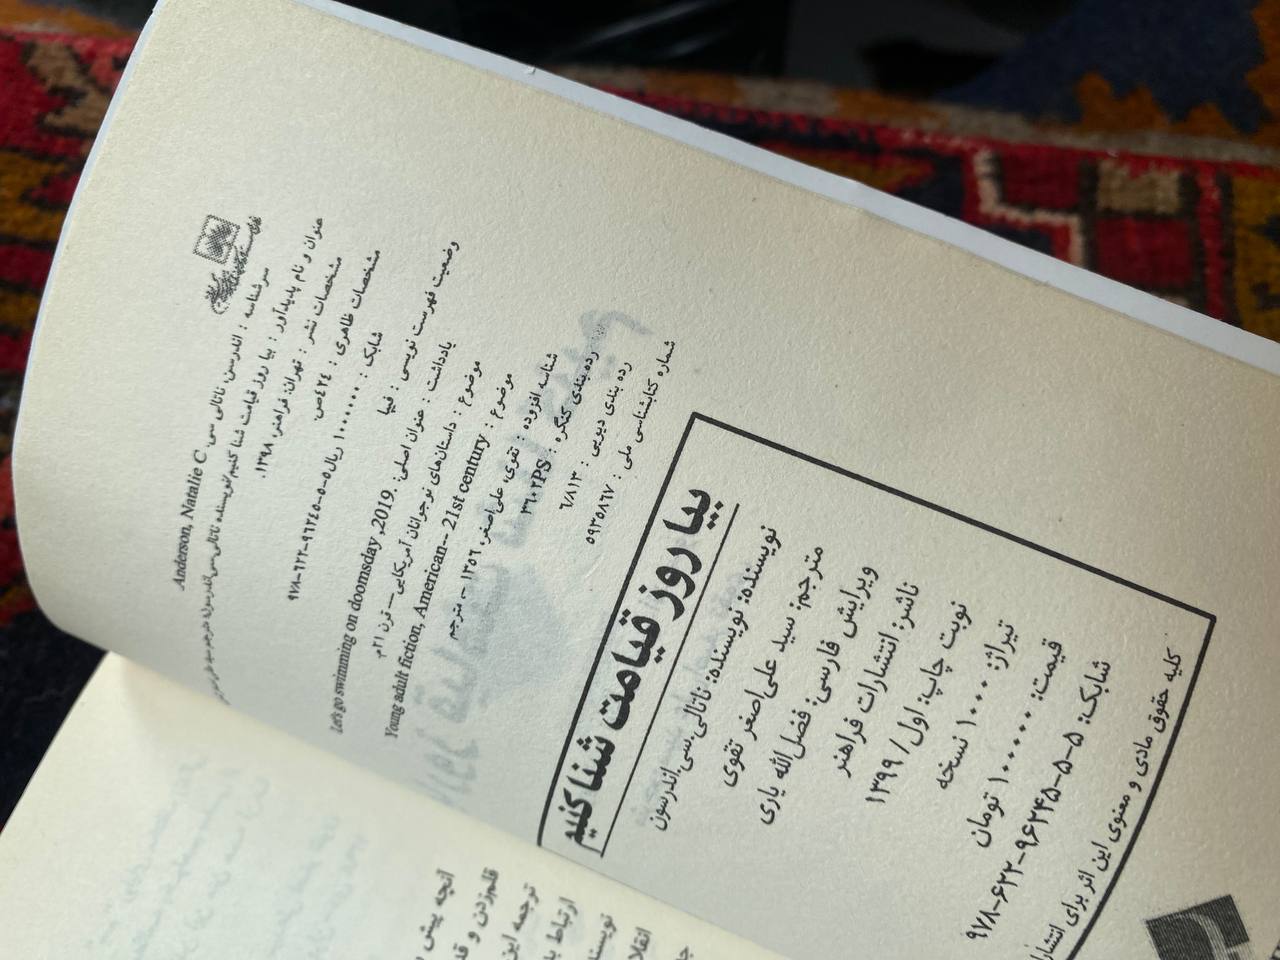 سرشناسه : اندرسن، ناتالی سی. Anderson, Natalie C
عنوان و نام پدیدآور : بیا روز قیامت شنا کنیم/نویسنده ناتالی‌سی‌اندرسون؛ مترجم
مشخصات نشر : تهران: فراهنر، ۱۳۹۸.
مشخصات ظاهری : ۴۲۴ص.
شابک : ۱۰۰۰۰۰۰ ریال ۵-۵-۹۶۲۴۵-۶۲۲-۹۷۸
وضعیت فهرست نویسی : فیپا
یادداشت : عنوان اصلی: Let's go swimming on doomsday ,2019.
موضوع : داستان‌های نوجوانان آمریکایی — قرن ۲۱م
موضوع : Young adult fiction, American-- 21st century
شناسه افزوده : تقوی، علی‌اصغر، ۱۳۵۶ - ، مترجم
رده بندی کنگره : PS۳۶۰۲
رده بندی دیویی : ۸۱۳/۶
شماره کتابشناسی ملی : ۵۹۳۵۸۶۷
بیا روز قیامت شنا کنیم
نویسنده: نویسنده: ناتالی‌سی‌اندرسون
مترجم: سید علی‌اصغر تقوی
ویرایش فارسی: فضل‌الله یاری
ناشر: انتشارات فراهنر
نوبت چاپ: اول/ ۱۳۹۹
تیراژ: ۱۰۰۰ نسخه
قیمت: ۱۰۰۰۰۰ تومان
شابک: ۵-۵-۹۶۲۴۵-۶۲۲-۹۷۸
کلیه حقوق مادی و معنوی این اثر برای
آنچه پیش
قلم‌زدن و
ترجمه این
ارتباط